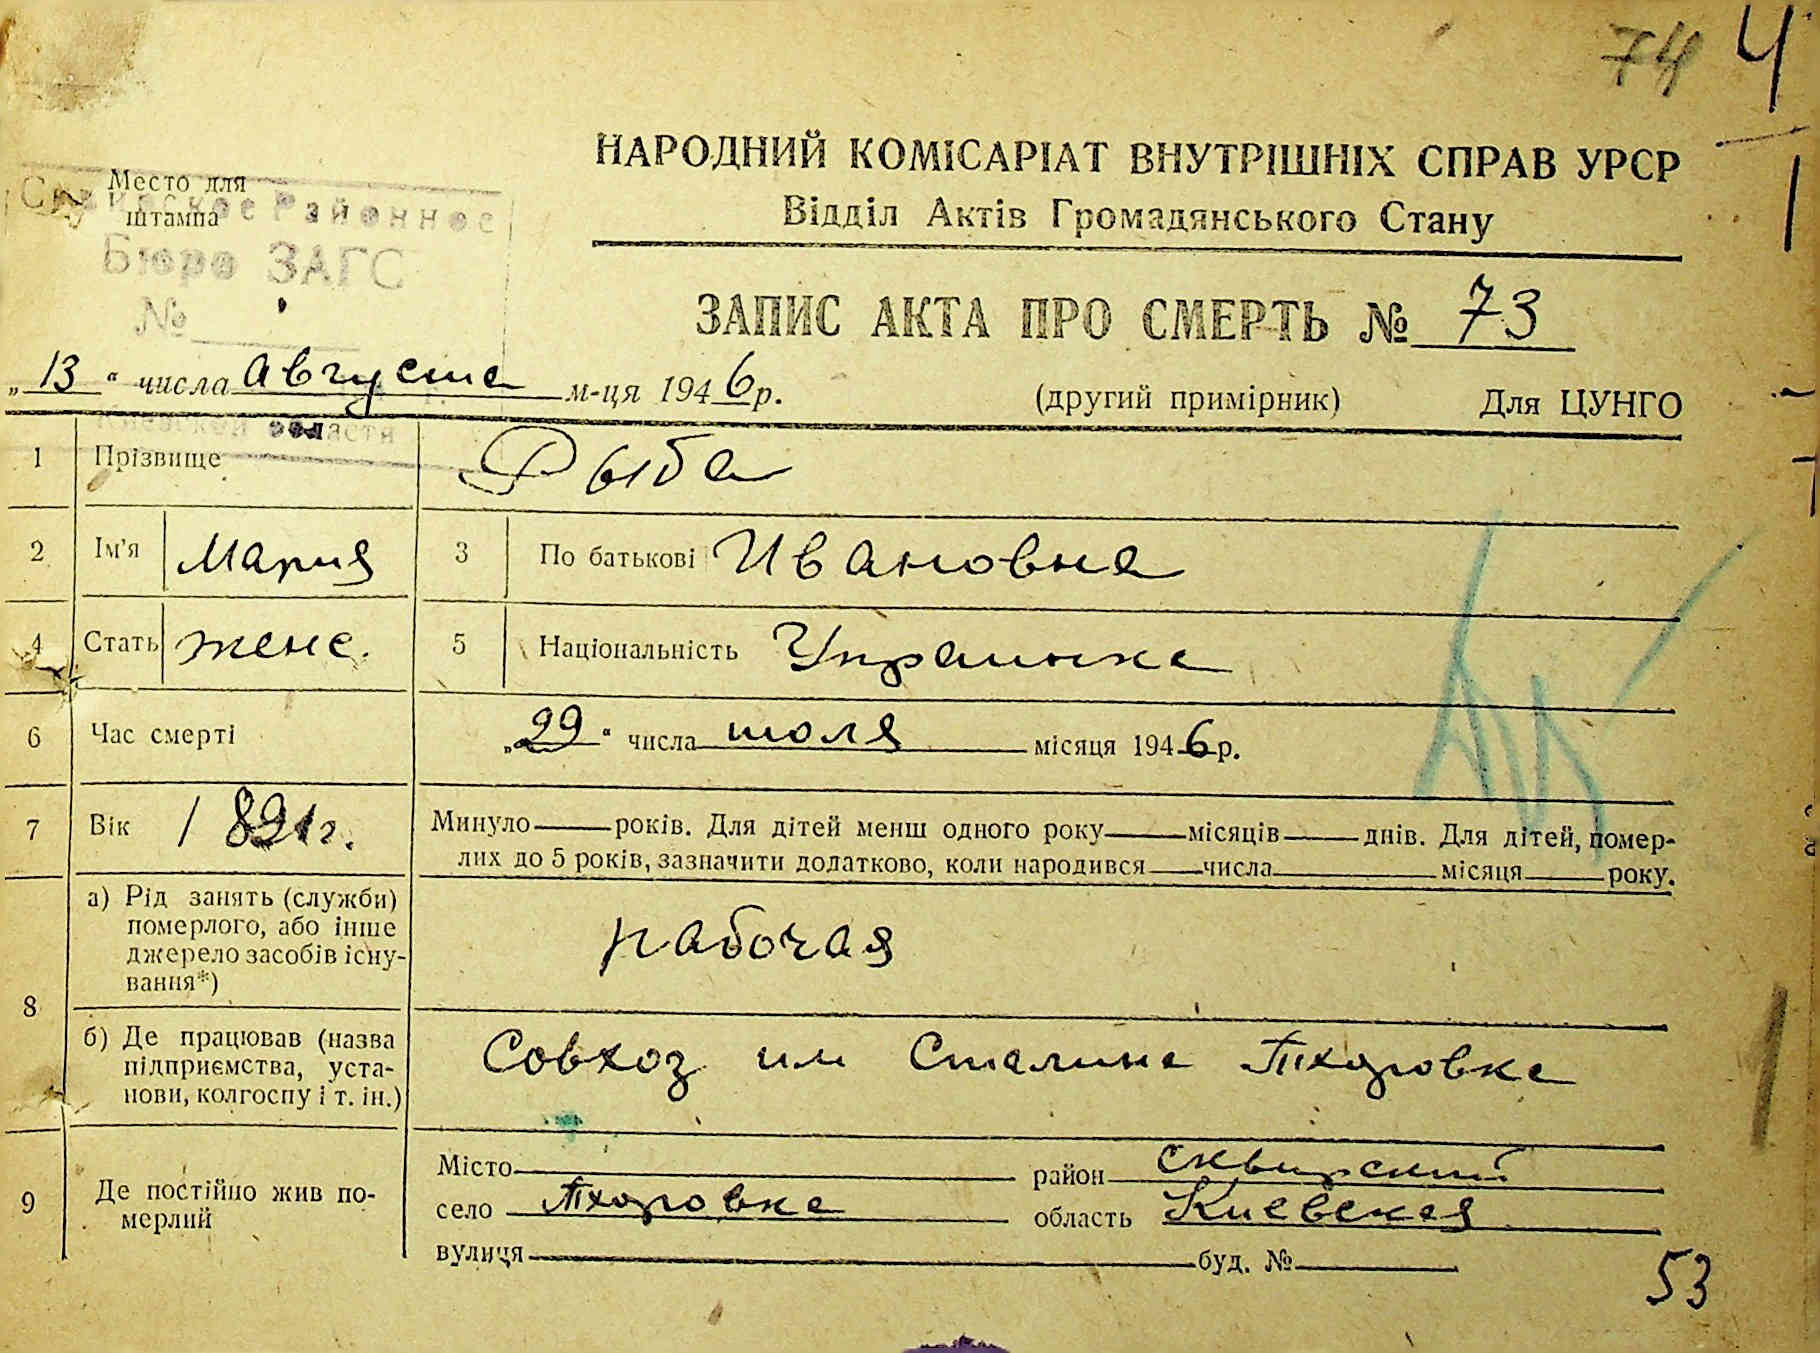 74 4
НАРОДНИЙ КОМІСАРІАТ ВНУТРІШНІХ СПРАВ УРСР
Место для
штампа
Сквирское Районное
Бюро ЗАГС
№
Киевской области
Відділ Актів Громадянського Стану
ЗАПИС АКТА ПРО СМЕРТЬ № 73
„13“ числа августа м-ця 1946р. (другий примірник) Для ЦУНГО
1 Прізвище Рыба
2 Ім'я Мария 3 По батькові Ивановна
4 Стать женс. 5 Національність Украинка
6 Час смерті „29“ числа июля місяця 1946р.
7 Вік 1891г. Минуло років. Для дітей менш одного року місяців днів. Для дітей, помер-
лих до 5 років, зазначити додатково, коли народився числа місяця року.
8 а) Рід занять (служби)
померлого, або інше
джерело засобів існу-
вання*)
рабочая
б) Де працював (назва
підприємства, уста-
нови, колгоспу і т. ін.)
Совхоз им Сталина Тхоровка
9 Де постійно жив по-
мерлий
Місто район сквирский
село Тхоровка область Киевская
вулиця буд. №
53